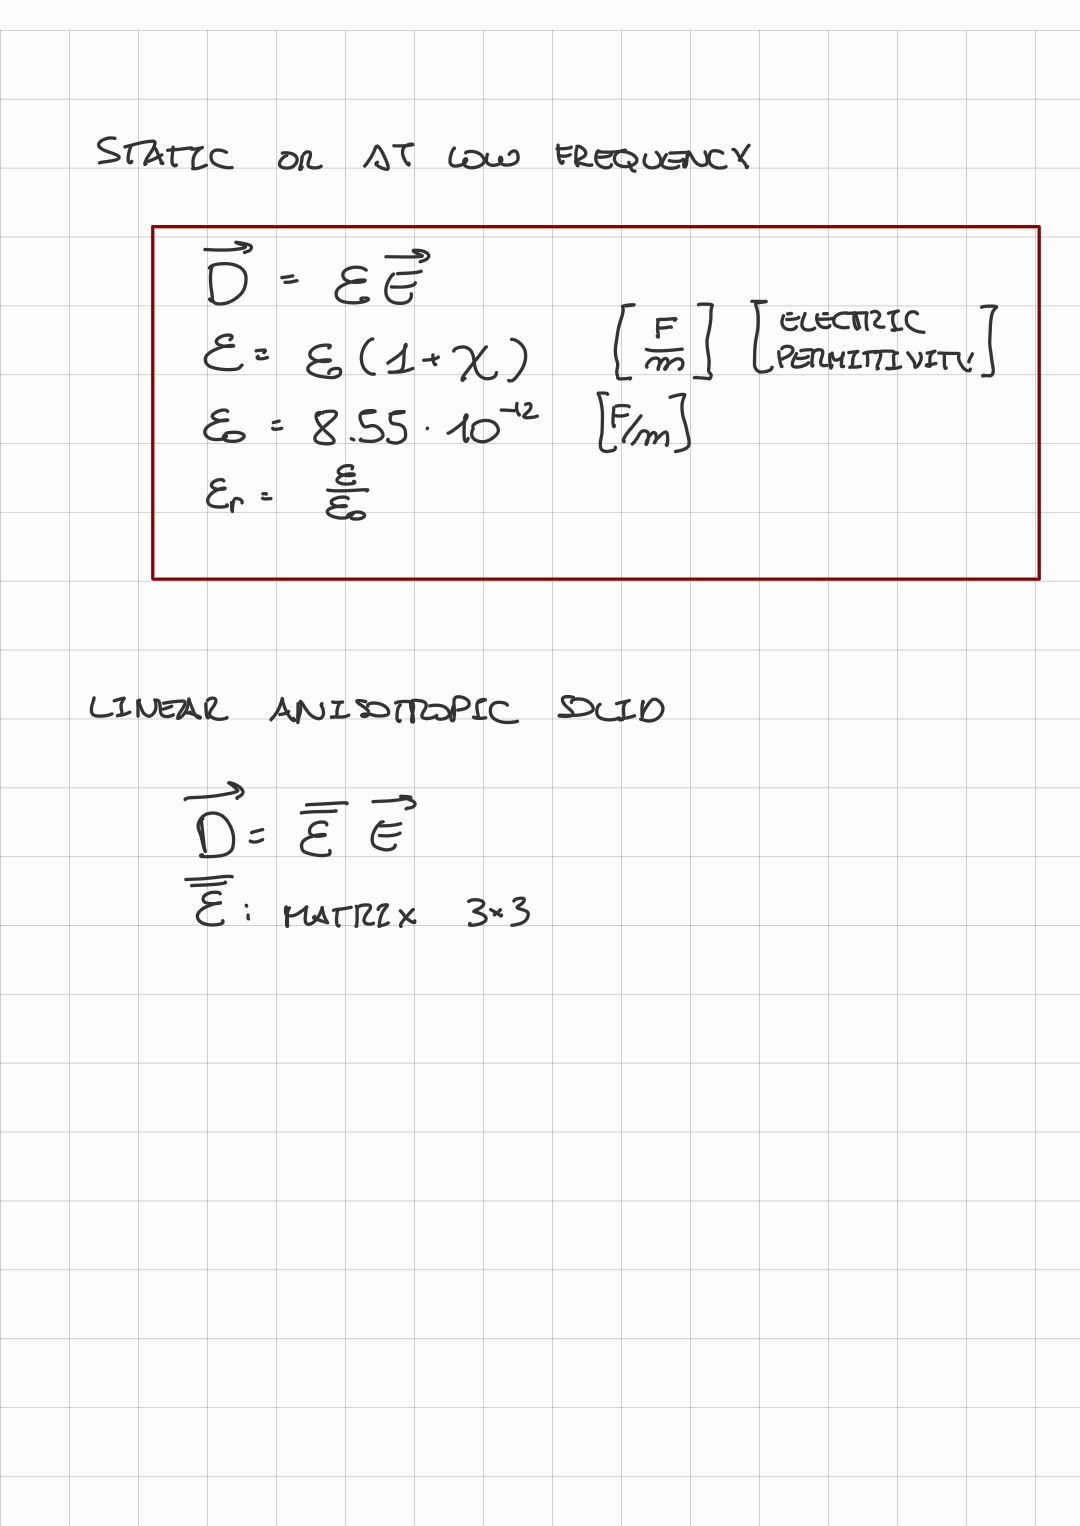 STATIC OR AT LOW FREQUENCY
D⃗ = ε E⃗
ε = ε₀ (1 + χ) [F/m] [ELECTRIC PERMITTIVITY]
ε₀ = 8.55 · 10⁻¹² [F/m]
εr = ε/ε₀
LINEAR ANISOTROPIC SOLID
D⃗ = ε̿ E⃗
ε̿ : MATRIX 3×3